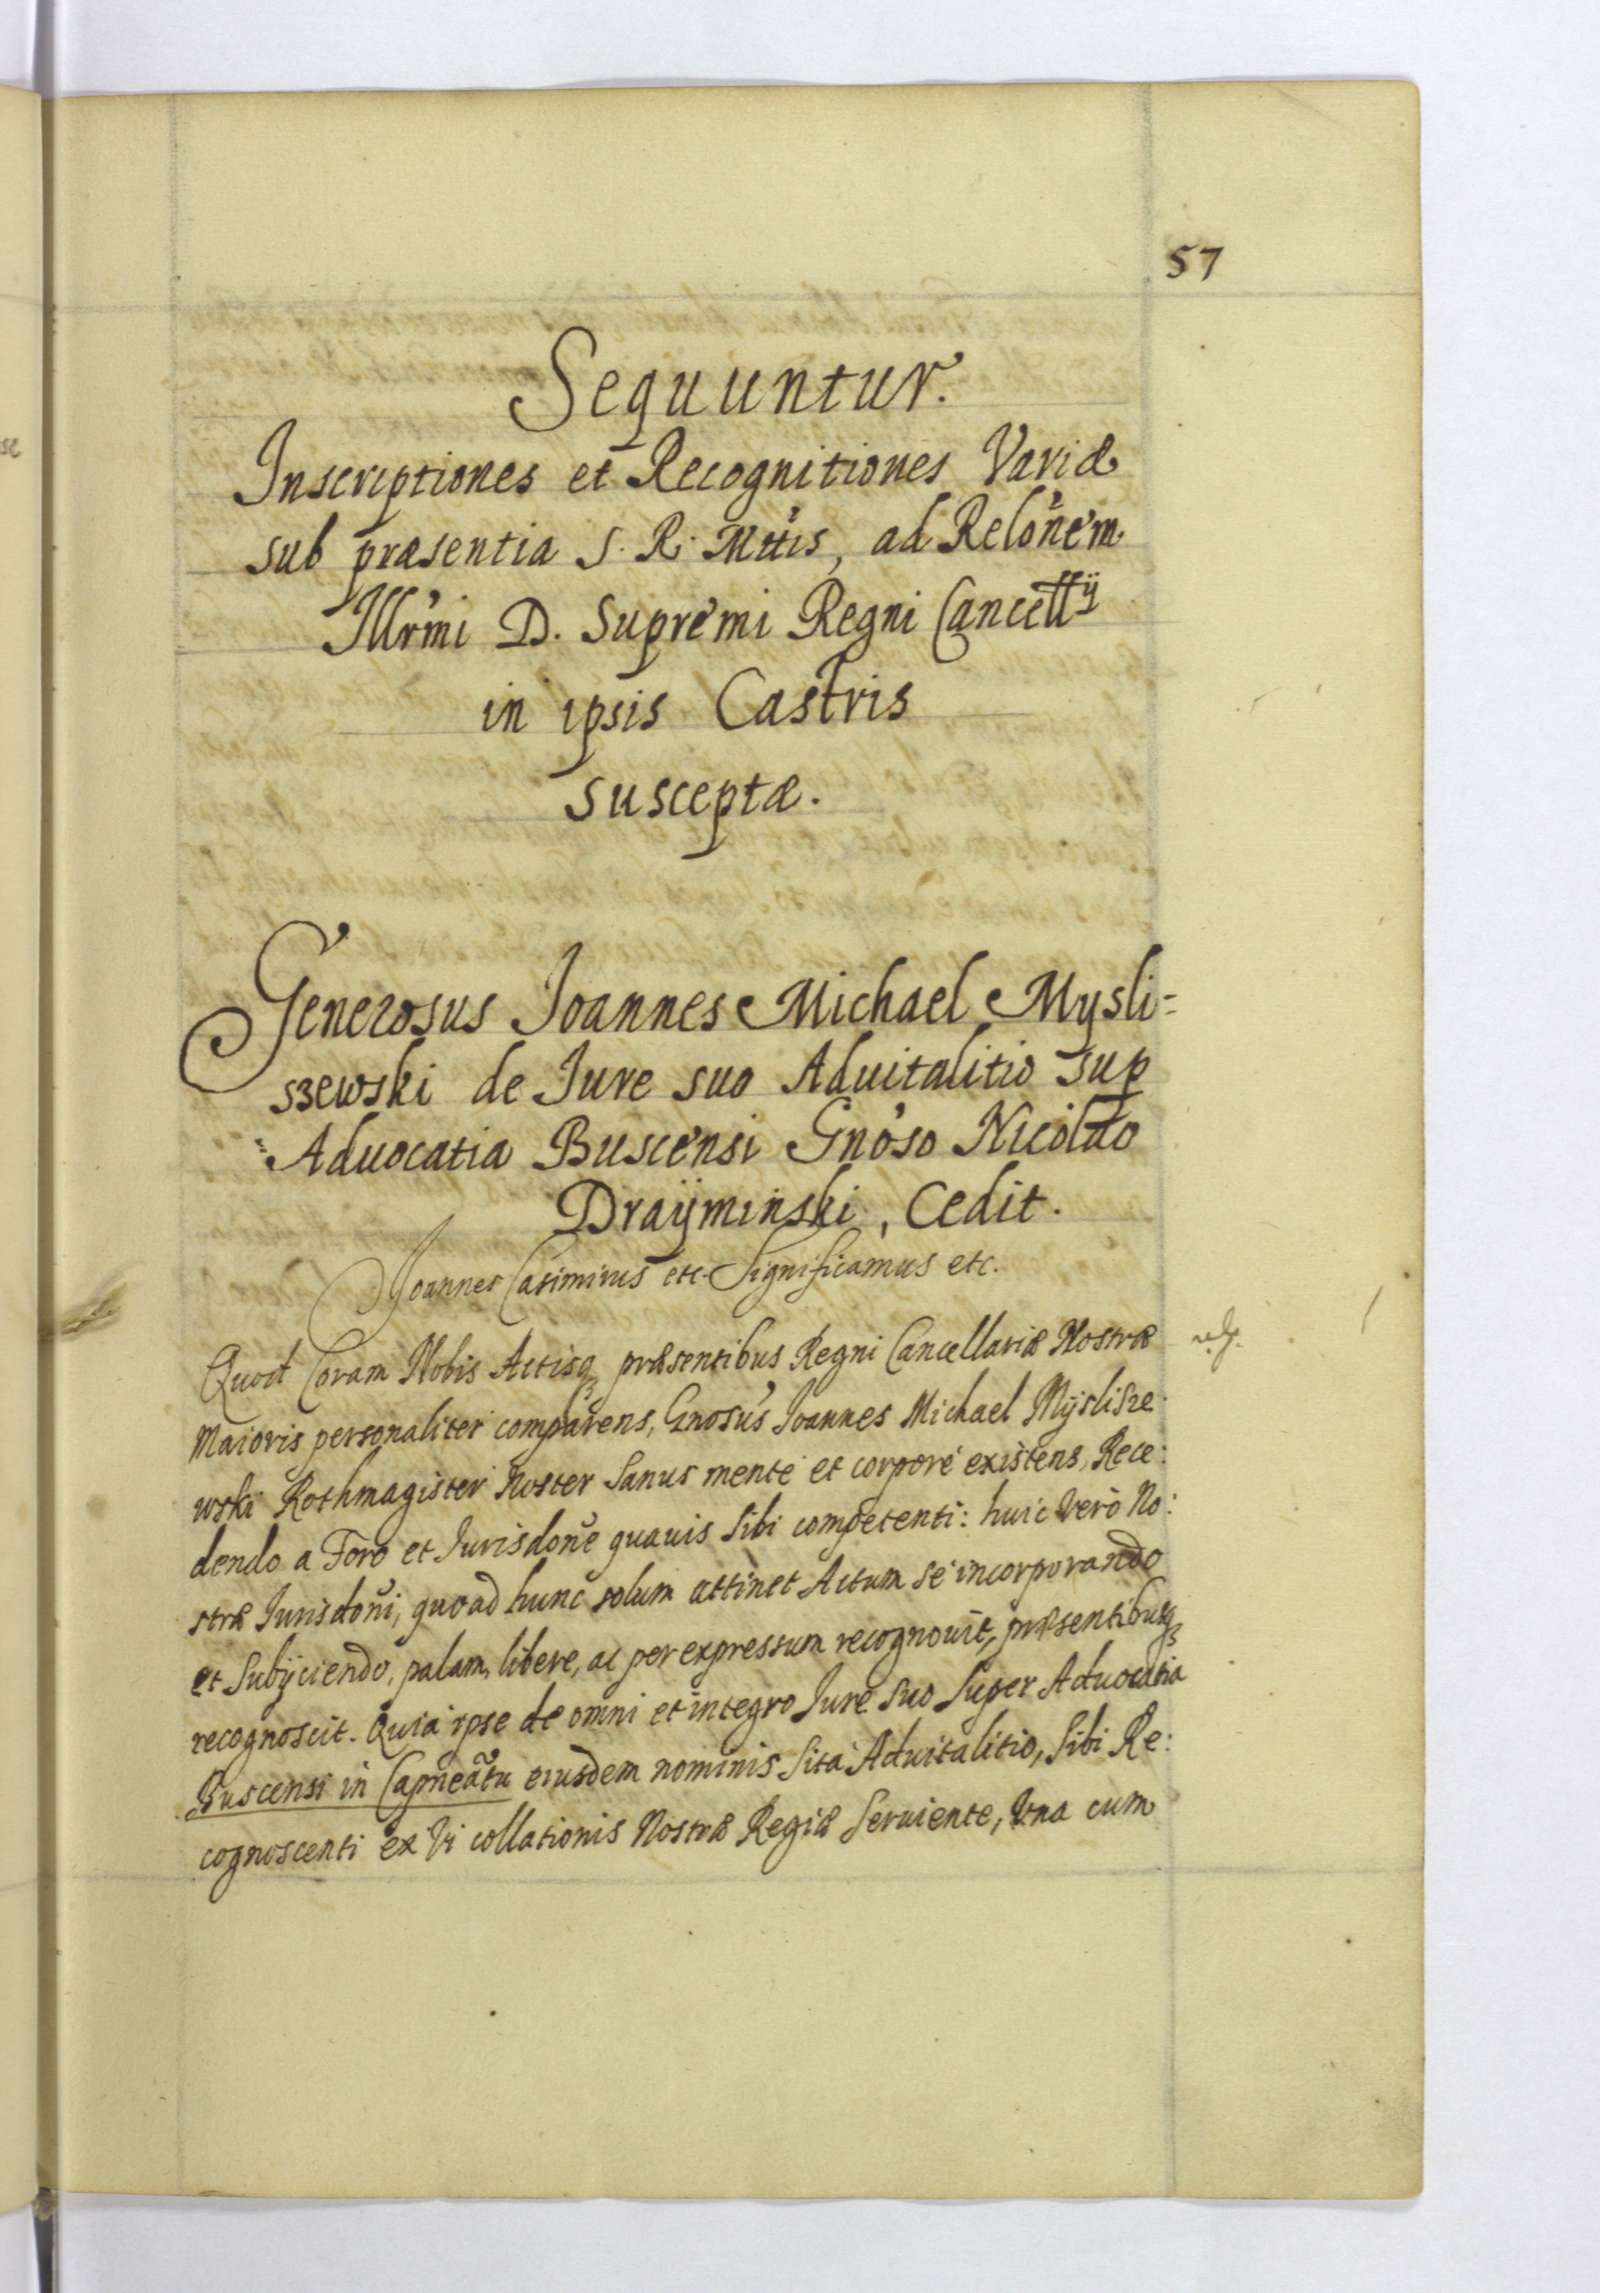 57
Sequuntur.
Inscriptiones et Recognitiones Variæ
sub præsentia S. R. Mttis, ad Relonem
Illrmi D. Supremi Regni Cancellÿ
in ipsis Castris
susceptæ.
Generosus Joannes Michael Mysli=
szewski de Jure suo Aduitalitio sup
Aduocatia Buscensi Gnoso Nicolao
Draÿminski, Cedit.
Joannes Casimirus etc. Significamus etc.
Quod Coram Nobis Actisq præsentibus Regni Cancellariæ Nostræ
Maioris personaliter comparens, Gnosus Joannes Michael Mÿslisze
wski Rothmagister Noster Sanus mente et corpore existens, Rece:
dendo a Foro et Jurisdone quauis Sibi competenti: huic Vero No:
stræ Jurisdoni, quoad hunc solum attinet Actum se incorporando
et Subÿciendo, palam, libere, ac per expressum recognouit, præsentibusq
recognoscit. Quia ipse de omni et integro Jure Suo Super Aduocatia
Buscensi in Capneatu eiusdem nominis Sita Aduitalitio, Sibi Re:
cognoscenti ex Vi collationis Nostræ Regiæ Seruiente, Vna cum